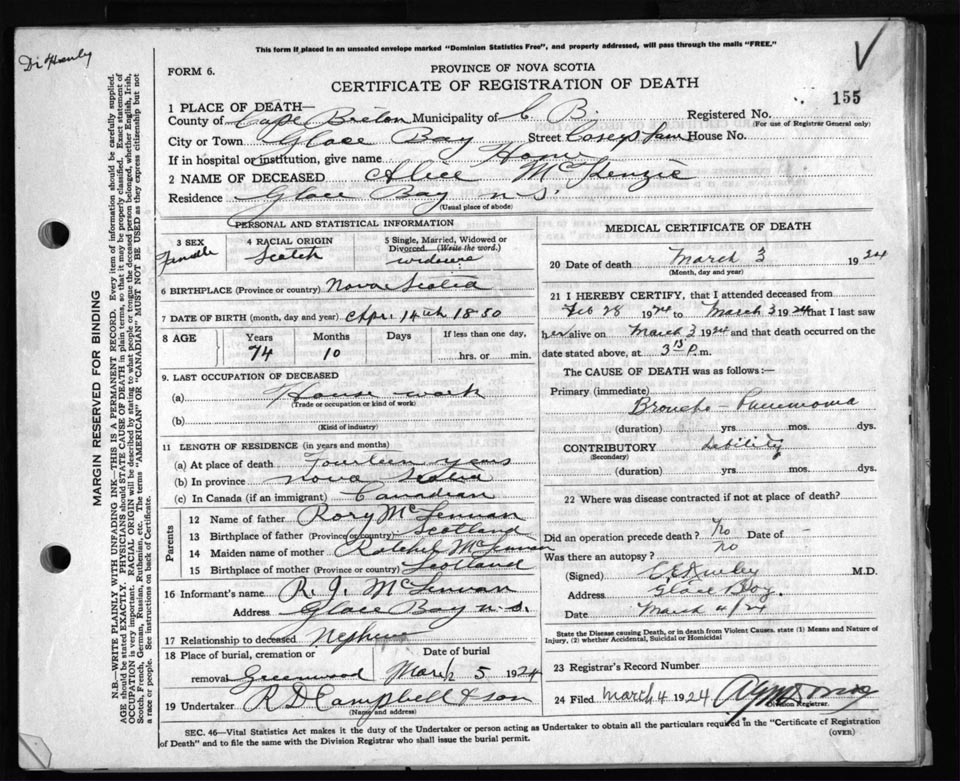 This form if placed in an unsealed envelope marked "Dominion Statistics Free", and properly addressed, will pass through the mails "FREE."
FORM 6.
PROVINCE OF NOVA SCOTIA
CERTIFICATE OF REGISTRATION OF DEATH
155
1 PLACE OF DEATH—
County of Cape Breton Municipality of C B. Registered No.
(For use of Registrar General only)
City or Town Glace Bay Street House No.
If in hospital or institution, give name Home
2 NAME OF DECEASED Alice McKenzie
Residence Glace Bay n s.
(Usual place of abode)
PERSONAL AND STATISTICAL INFORMATION
3 SEX Female
4 RACIAL ORIGIN Scotch
5 Single, Married, Widowed or Divorced (Write the word.)
6 BIRTHPLACE (Province or country) Nova Scotia
7 DATE OF BIRTH (month, day and year) Apr. 14th 1850
8 AGE Years 74 Months 10 Days If less than one day, hrs. or min.
9. LAST OCCUPATION OF DECEASED
(a) House work
(Trade or occupation or kind of work)
(b)
(Kind of industry)
11 LENGTH OF RESIDENCE (in years and months)
(a) At place of death Fourteen years
(b) In province nova Scotia
(c) In Canada (if an immigrant) Canadian
Parents
12 Name of father Rory McLennan
13 Birthplace of father (Province or country) Scotland
14 Maiden name of mother McLennan
15 Birthplace of mother (Province or country) Scotland
16 Informant's name R. J. McLennan
Address Glace Bay n.s.
17 Relationship to deceased Nephew
18 Place of burial, cremation or removal Greenwood
Date of burial March 5 1924
19 Undertaker R D Campbell & son
(Name and address)
MEDICAL CERTIFICATE OF DEATH
20 Date of death March 3 1924
(Month, day and year)
21 I HEREBY CERTIFY, that I attended deceased from
Feb 28 1924 to March 3 1924 that I last saw
her alive on March 3 1924 and that death occurred on
date stated above, at 3 15 P.m.
The CAUSE OF DEATH was as follows:—
Primary (immediate)
Broncho-Pneumonia
(duration) yrs. mos. dys.
CONTRIBUTORY Debility
(Secondary)
(duration) yrs. mos. dys.
22 Where was disease contracted if not at place of death?
Did an operation precede death? No Date of -
Was there an autopsy? no
(Signed) M.D.
Address Glace Bay.
Date March 4/24
State the Disease causing Death, or in death from Violent Causes, state (1) Means and Nature of
Injury, (2) whether Accidental, Suicidal or Homicidal
23 Registrar's Record Number
24 Filed March 4 1924
Division Registrar.
SEC. 46—Vital Statistics Act makes it the duty of the Undertaker or person acting as Undertaker to obtain all the particulars required in the "Certificate of Registration
of Death" and to file the same with the Division Registrar who shall issue the burial permit.
(OVER)
MARGIN RESERVED FOR BINDING
N.B.—WRITE PLAINLY WITH UNFADING INK—THIS IS A PERMANENT RECORD. Every item of information should be carefully supplied.
AGE should be stated EXACTLY. PHYSICIANS should STATE CAUSE OF DEATH in plain terms, so that it may be properly classified. Exact statement of
OCCUPATION is very important. RACIAL ORIGIN will be described by stating to what people or tongue the deceased person belonged, whether English, Irish,
Scotch, French, German, Russian, Ruthenian, etc. The terms "AMERICAN" or "CANADIAN" MUST NOT BE USED as they express citizenship but not
a race or people. See instructions on back of Certificate.